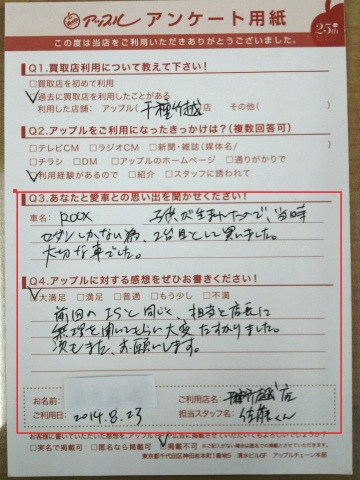 アップル アンケート用紙 25th
この度は当店をご利用いただきありがとうございました。
Q1.買取店利用について教えて下さい!
□買取店を初めて利用
□過去に買取店を利用したことがある
利用した店舗: アップル( 千種竹越 店 その他( )
Q2.アップルをご利用になったきっかけは?(複数回答可)
□テレビCM □ラジオCM □新聞・雑誌(媒体名/ )
□チラシ □DM □アップルのホームページ □通りがかりで
□利用経験があるので □紹介 □スタッフに誘われて
Q3.あなたと愛車との思い出を聞かせてください!
車名: ROOX 子供が生まれたので、当時
セダンしかない為、2台目として買いました。
大切な車でした。
Q4.アップルに対する感想をぜひお書きください!
□大満足 □満足 □普通 □もう少し □不満
前回のISと同じく、担当と店長に
無理を聞いてもらい大変たすかりました。
次もまた、お願いします。
お名前: ご利用店名: 千種竹越店
ご利用日: 2014.8.23 担当スタッフ名: 佐藤くん
お客様に書いていただいた感想を、アップルHPや広告に掲載させていただいてもよろしいでしょうか?
□実名で掲載可 □匿名なら掲載可 □掲載不可
東京都千代田区神田岩本町1番地5 清水ビル6F アップルチェーン本部